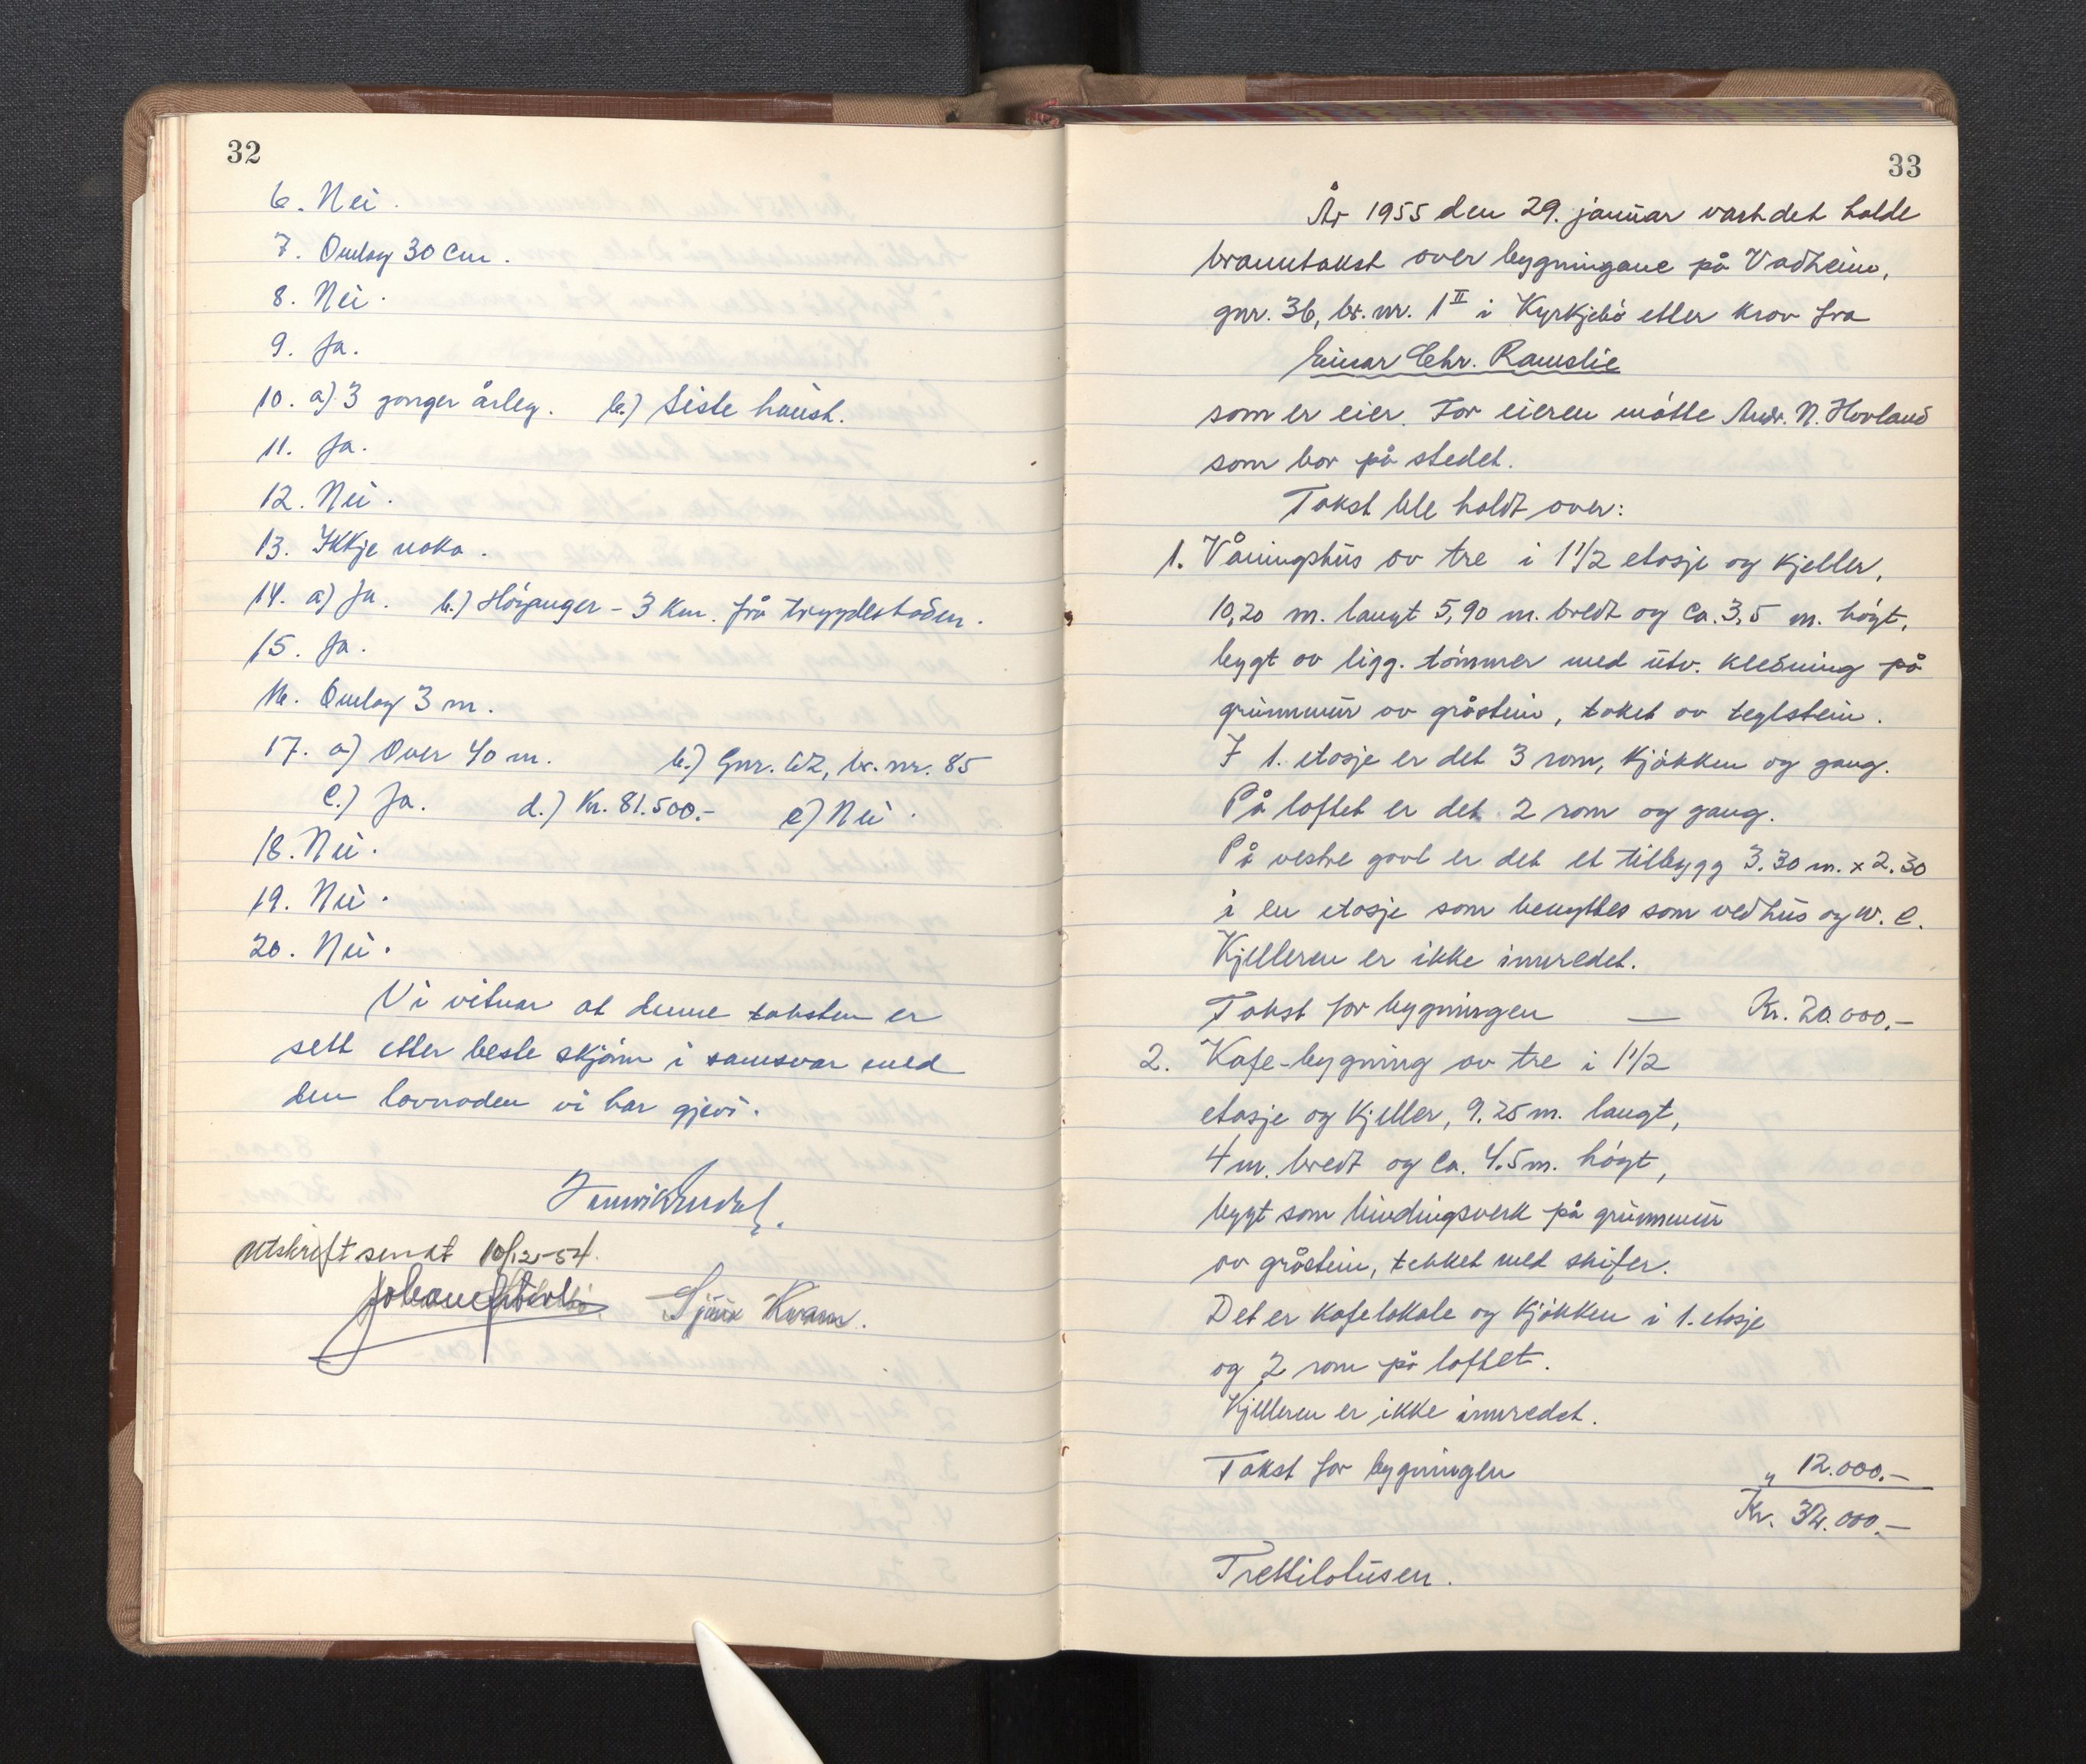 32
6. Nei.
7. Omlag 30 cm.
8. Nei.
9. Ja.
10. a) 3 gonger årleg. b.) Siste haust.
11. Ja.
12. Nei.
13. Ikkje noko.
14. a) Ja. b.) Höyanger - 3 km. frå trygdestaden.
15. Ja.
16. Omlag 3 m.
17. a) Over 40 m. b.) Gnr. 62, br. nr. 85
c.) Ja. d.) Kr. 81.500.- e) Nei.
18. Nei.
19. Nei.
20. Nei.
Vi vitnar at denne taksten er
sett etter beste skjönn i samsvar med
den lovnaden vi har gjevi.
Utskrift sendt 10/12-54.
Kvamme.
33
År 1955 den 29. januar vart det halde
branntakst over bygningane på Vadheim,
gnr. 36, br. nr. 1 II i Kyrkjebö etter krav fra
Einar Chr. Ramslie
som er eier. For eieren mötte Andr. N. Hovland
som bor på stedet.
Takst ble holdt over:
1. Våningshus av tre i 1 1/2 etasje og kjeller,
10,20 m. langt 5,90 m. bredt og ca. 3,5 m. höyt,
bygt av ligg. tömmer med utv. kledning på
grunnmur av gråstein, taket av teglstein.
I 1. etasje er det 3 rom, kjökken og gang.
På loftet er det 2 rom og gang.
På vestre gavl er det et tilbygg 3.30 m. x 2.30
i en etasje som benyttes som vedhus og W. C.
Kjelleren er ikke innredet.
Takst for bygningen — Kr. 20.000,-
2. Kafe-bygning av tre i 1 1/2
etasje og kjeller, 9.25 m. langt,
4 m. bredt og ca. 4.5 m. höyt,
bygt som bindingsverk på grunnmur
av gråstein, tekket med skifer.
Det er kafelokale og kjökken i 1. etasje
og 2 rom på loftet.
Kjelleren er ikke innredet.
Takst for bygningen " 12.000.-
Kr. 32.000.-
Trettitotusen.